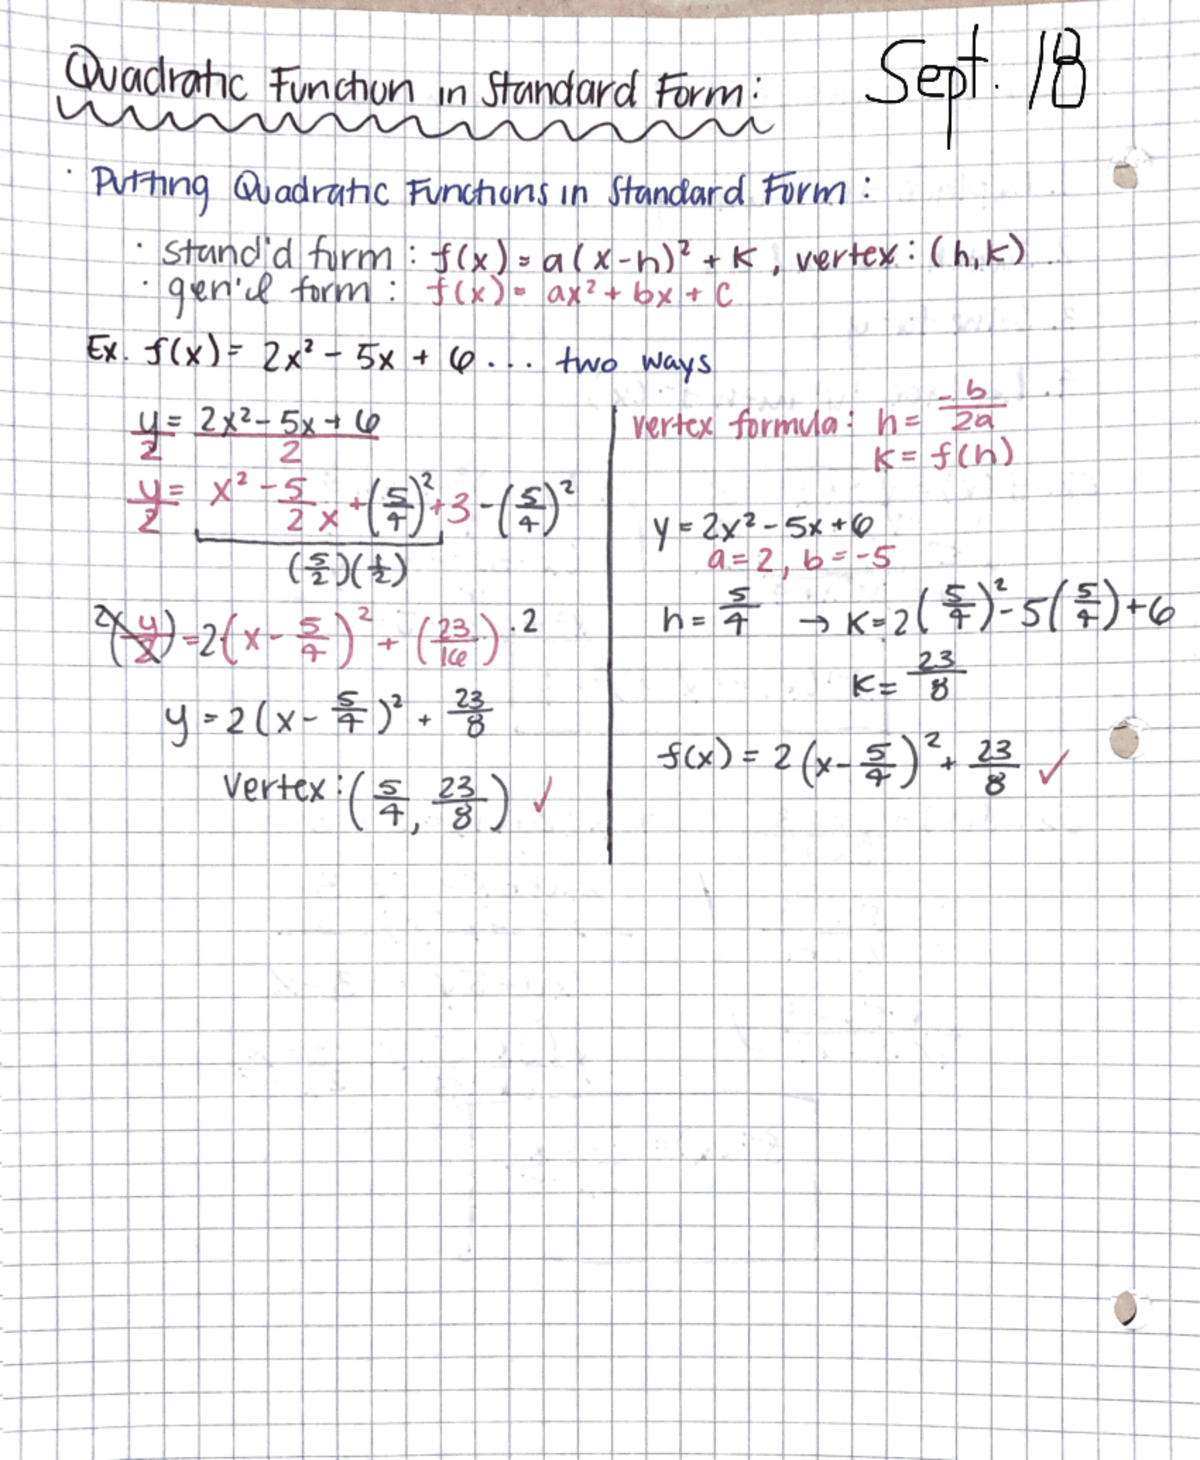 Quadratic Function in Standard Form:
Sept. 18
· Putting Quadratic Functions in Standard Form:
· stand'd form: f(x) = a(x-h)² + k, vertex: (h,k)
· gen'l form: f(x) = ax² + bx + c
Ex. f(x) = 2x² - 5x + 6 ... two ways
y/2 = (2x² - 5x + 6)/2
y/2 = x² - 5/2 x + (5/4)² + 3 - (5/4)²
(5/2)(1/2)
2(y/2) = 2(x - 5/4)² + (23/16) · 2
y = 2(x - 5/4)² + 23/8
Vertex: (5/4, 23/8) ✓
vertex formula: h = -b/2a
k = f(h)
y = 2x² - 5x + 6
a = 2, b = -5
h = 5/4 → k = 2(5/4)² - 5(5/4) + 6
k = 23/8
f(x) = 2(x - 5/4)² + 23/8 ✓